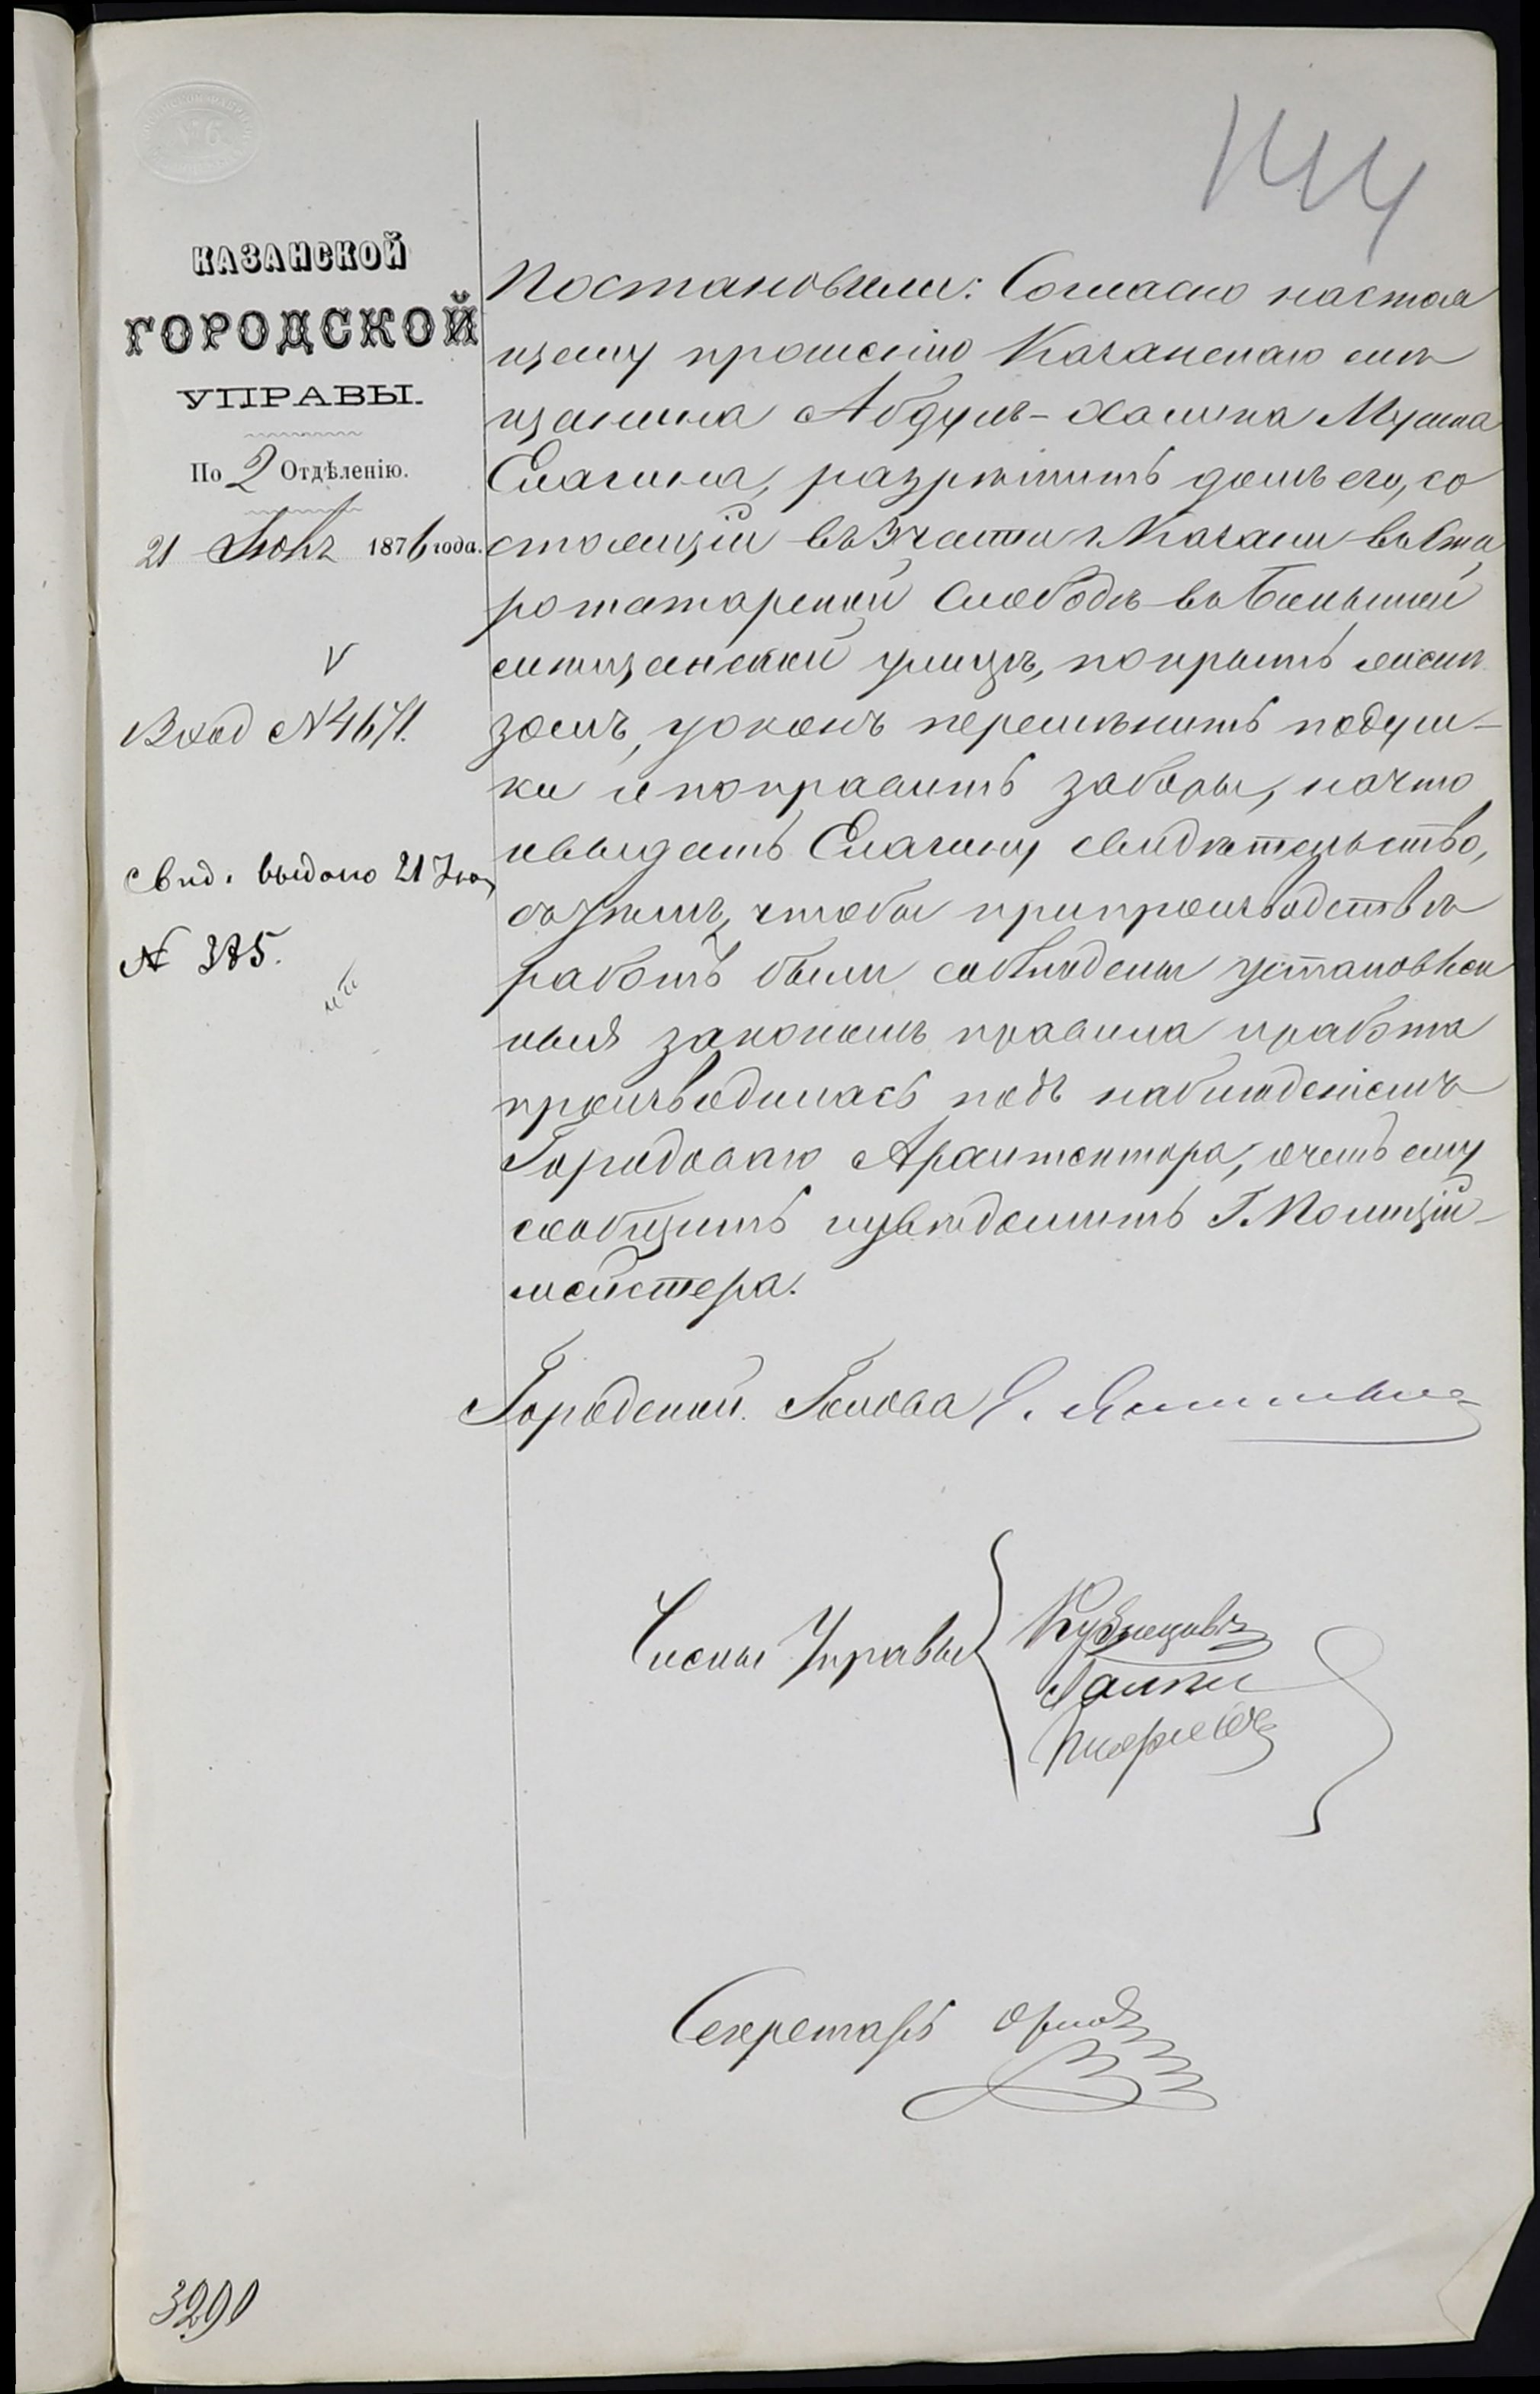 144
КАЗАНСКОЙ
ГОРОДСКОЙ
УПРАВЫ.
По 2 Отдѣленію.
21 Іюня 1876 года.
V
Вход №4671.
Свид. выдано 21 Іюн
№ 385.
Постановили: Согласно настоя
щему прошенію Казанскаго мѣ
щанина Абдулъ-Халика Муста
Елагина, разрѣшить домъ его, со
стоящій въ 3 части г. Казани въ Ста
ротатарской слободѣ въ Большой
мѣщанской улицѣ, покрыть желѣ
зомъ, у оконъ перемѣнить подуш-
ки и поправить заборы, на что
и выдать Елагину свидѣтельство,
съ тѣмъ, чтобы при производствѣ
работъ были соблюдены установлен
ныя закономъ правила и работа
производилась подъ наблюденіемъ
Городоваго Архитектора, о чемъ ему
сообщить и увѣдомить Г. Полиціи-
мейстера.
Городской Голова Э. Янишевскі
Члены Управы
Кузнецовъ
Секретарь
3290